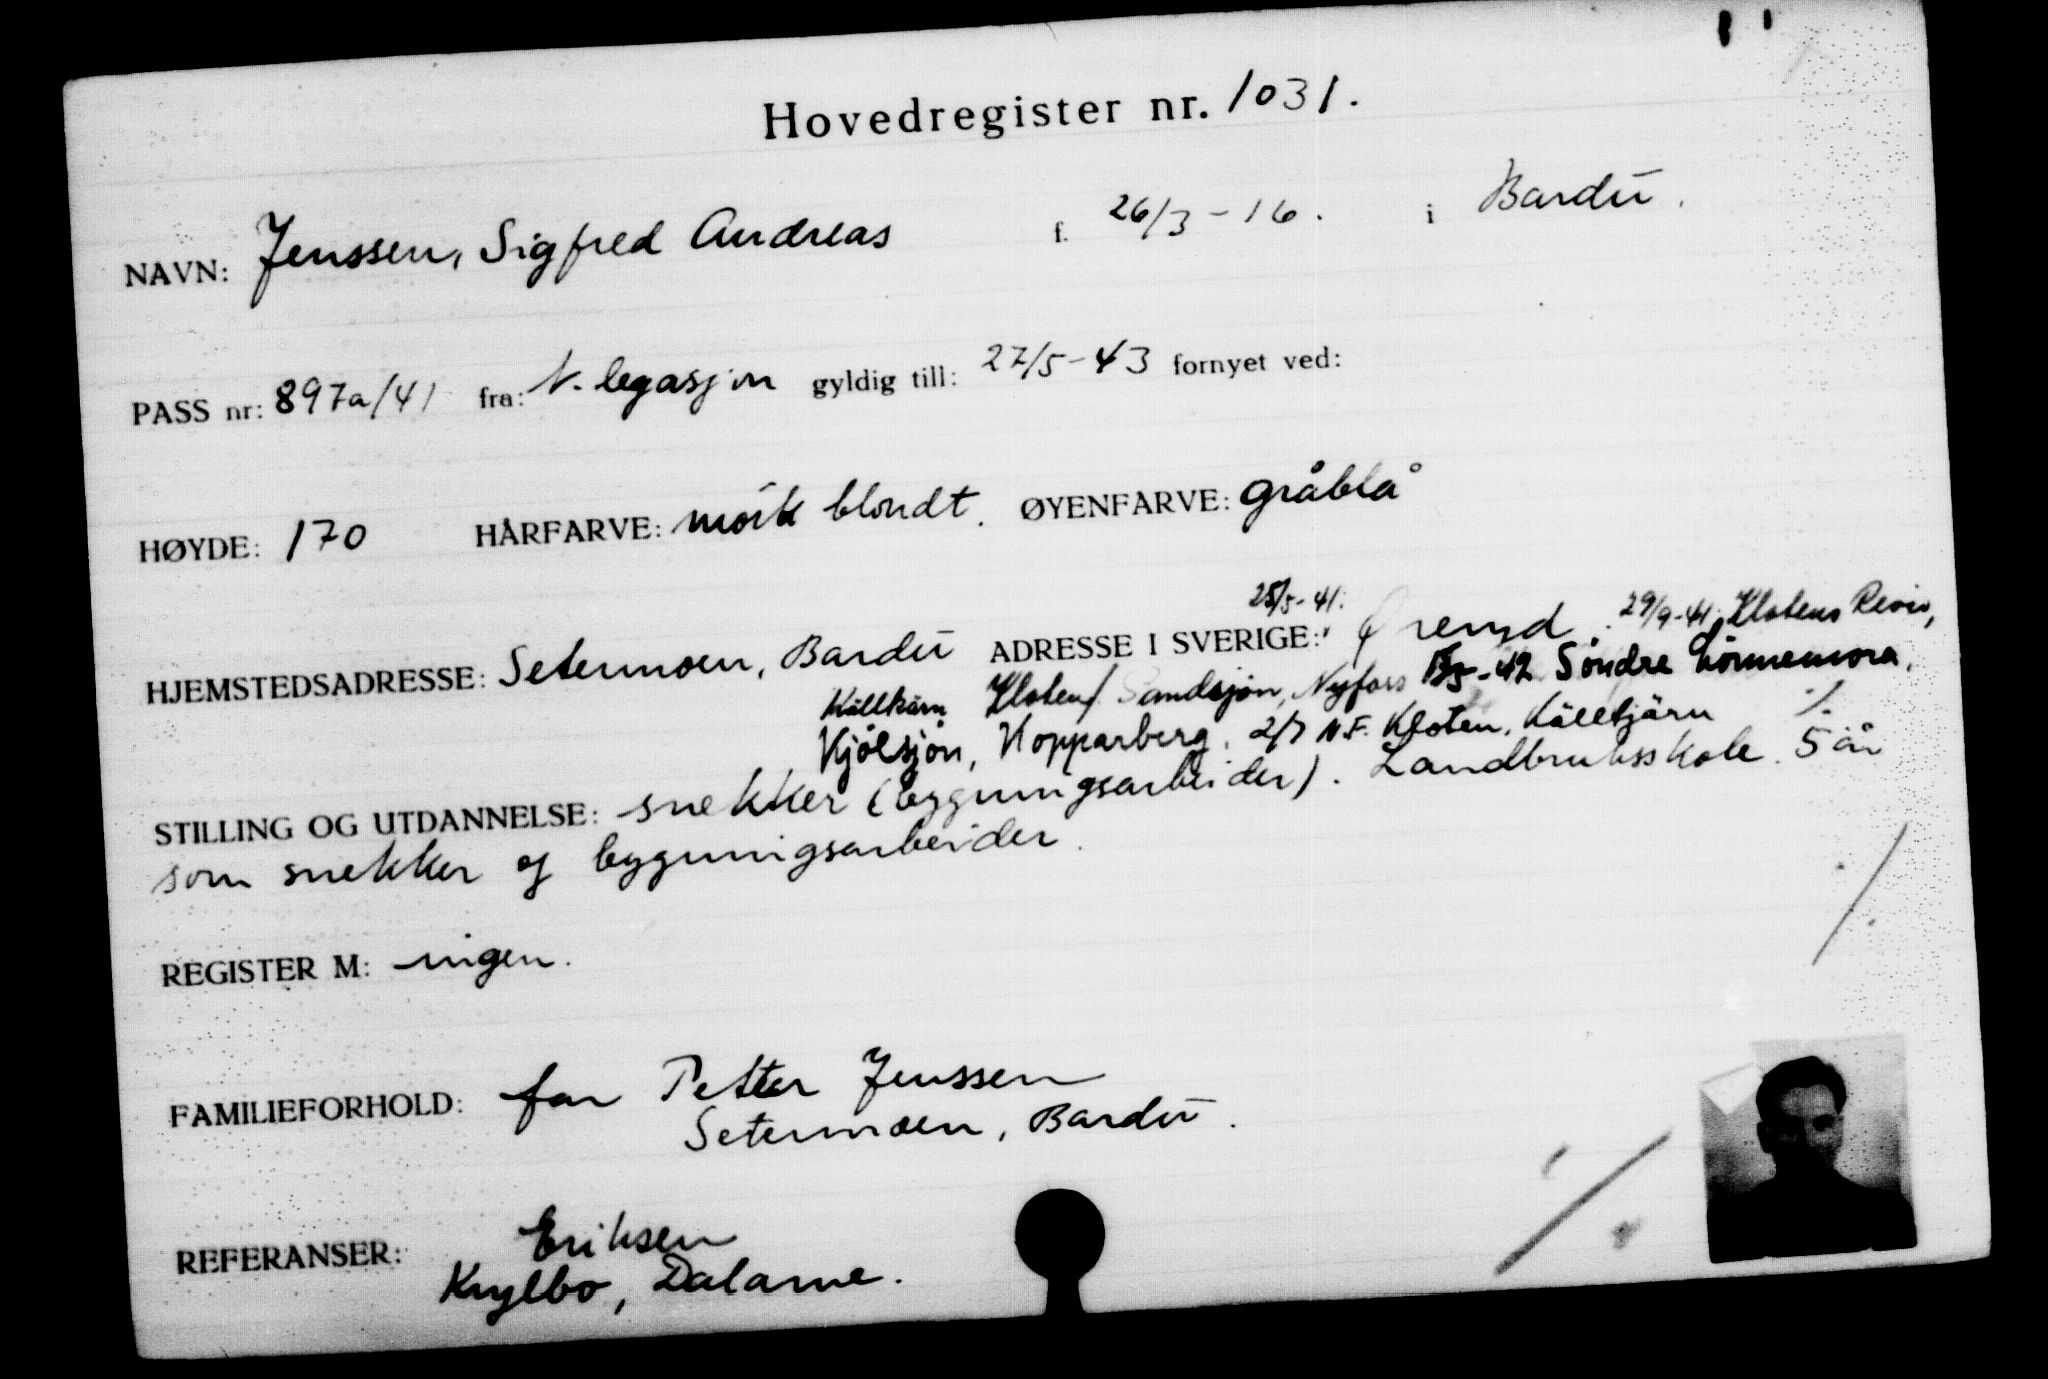 Hovedregister nr. 1031.
NAVN: Jenssen, Sigfred Andreas f. 26/3 - 16. i Bardu.
PASS nr: 897a/41 fra: N. legasjon gyldig till: 27/5 - 43 fornyet ved:
HØYDE: 170 HÅRFARVE: mørk blondt. ØYENFARVE: gråblå
25/5 - 41.
HJEMSTEDSADRESSE: Setermoen, Bardu ADRESSE I SVERIGE: Öreryd. 29/9-41. Klotens Revir,
Källtjärn Kloten/ Sandsjön, Nyfors - 42 Söndre
Kjölsjön, Kopparberg. 2/7 N.F. Kloten, Källtjärn
STILLING OG UTDANNELSE: snekker (bygningsarbeider). Landbruksskole. 5 år
som snekker og bygningsarbeider.
REGISTER M: ingen.
FAMILIEFORHOLD: far Petter Jenssen
Setermoen, Bardu.
REFERANSER: Eriksen
Krylbo, Dalarne.